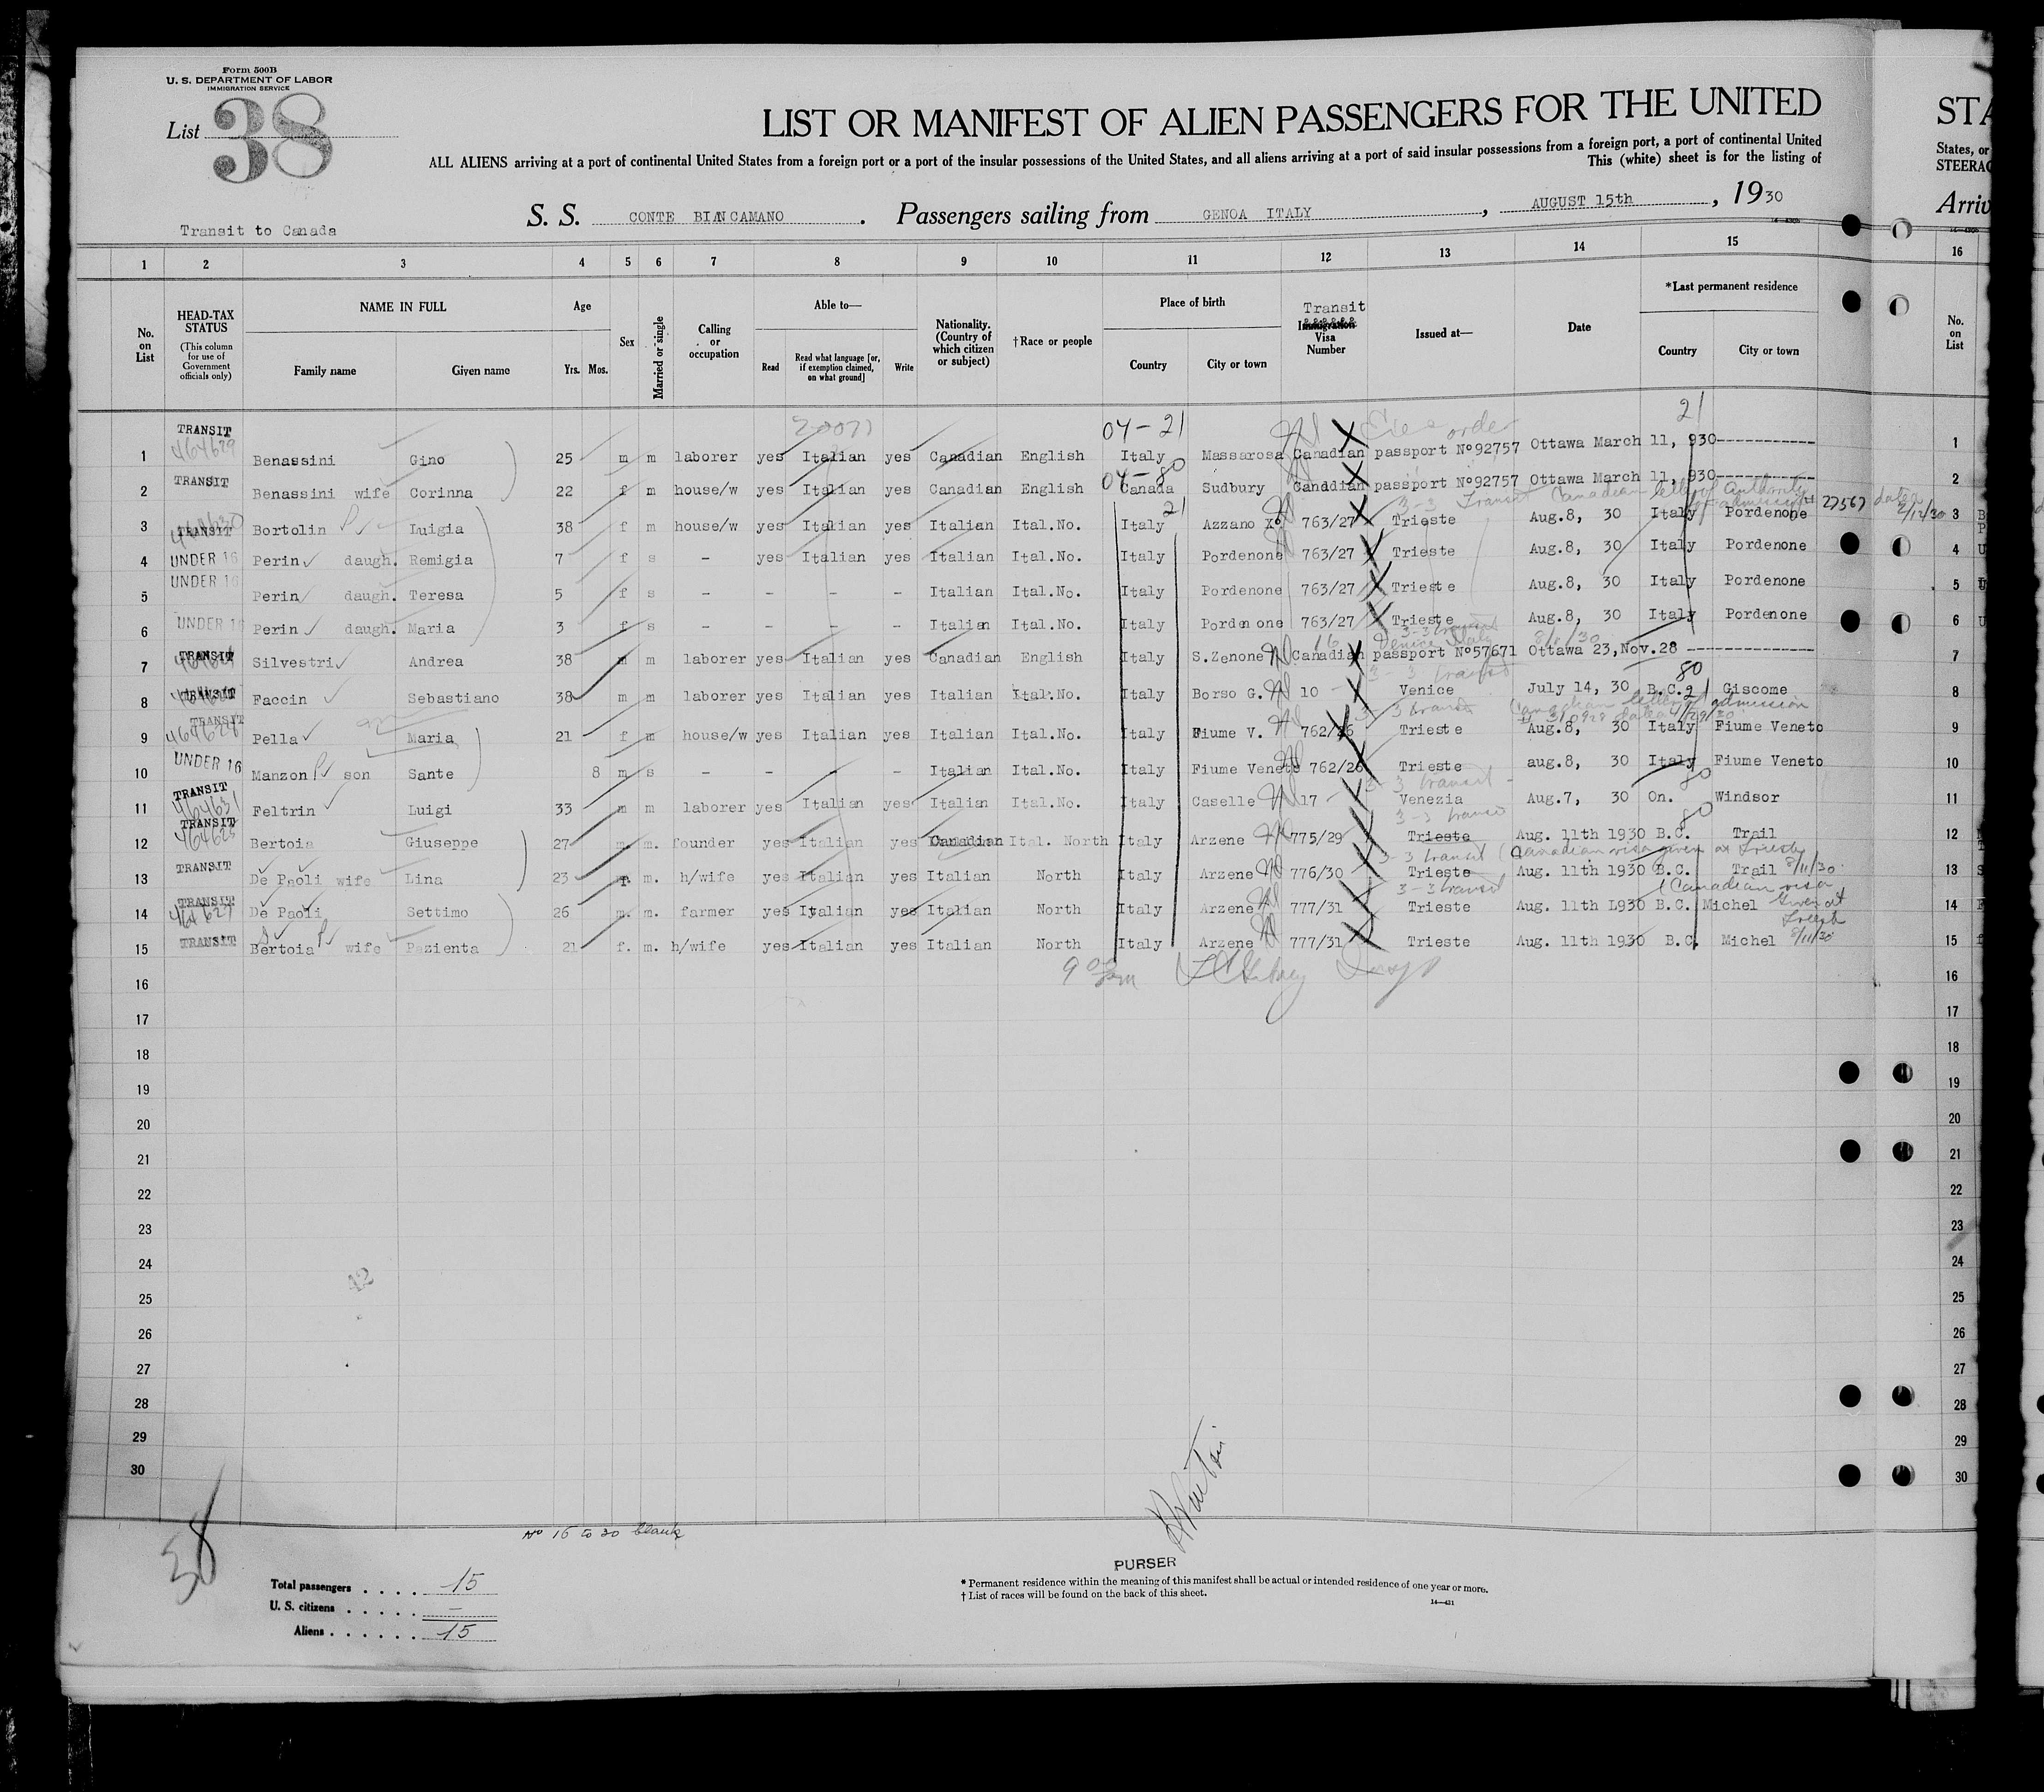 Form 500B
U. S. DEPARTMENT OF LABOR
IMMIGRATION SERVICE
List 38
LIST OR MANIFEST OF ALIEN PASSENGERS FOR THE UNITED
STA
ALL ALIENS arriving at a port of continental United States from a foreign port or a port of the insular possessions of the United States, and all aliens arriving at a port of said insular possessions from a foreign port, a port of continental United
States, or
This (white) sheet is for the listing of
STEERAG
S. S. CONTE BIANCAMANO . Passengers sailing from GENOA ITALY , AUGUST 15th , 1930
Arriv
Transit to Canada
1 2 3 4 5 6 7 8 9 10 11 12 13 14 15 16
No. on List
HEAD-TAX STATUS (This column for use of Government officials only)
NAME IN FULL
Family name Given name
Age
Yrs. Mos.
Sex
Married or single
Calling or occupation
Able to—
Read
Read what language [or, if exemption claimed, on what ground]
Write
Nationality. (Country of which citizen or subject)
†Race or people
Place of birth
Country City or town
Transit
Immigration Visa Number
Issued at—
Date
*Last permanent residence
Country City or town
No. on List
04-21 21
1 TRANSIT 464629 Benassini Gino 25 m m laborer yes Italian yes Canadian English Italy Massarosa Canadian passport Nº92757 Ottawa March 11, 930 1
04-80
2 TRANSIT Benassini wife Corinna 22 f m house/w yes Italian yes Canadian English Canada Sudbury Canddian passport Nº92757 Ottawa March 11, 930 2
21 3-3 Transit Canadian letter of authority of admission 27567 dated 2/12/30
3 TRANSIT 464630 Bortolin Luigia 38 f m house/w yes Italian yes Italian Ital.No. Italy Azzano Xº 763/27 Trieste Aug.8, 30 Italy Pordenone 3
4 UNDER 16 Perin daugh. Remigia 7 f s - yes Italian yes Italian Ital.No. Italy Pordenone 763/27 Trieste Aug.8, 30 Italy Pordenone 4
5 UNDER 16 Perin daugh. Teresa 5 f s - - - - Italian Ital.No. Italy Pordenone 763/27 Trieste Aug.8, 30 Italy Pordenone 5
6 UNDER 16 Perin daugh. Maria 3 f s - - - - Italian Ital.No. Italy Pordenone 763/27 Trieste Aug.8, 30 Italy Pordenone 6
16 3-3 transit Venice Italy 8/8/30
7 TRANSIT Silvestri Andrea 38 m m laborer yes Italian yes Canadian English Italy S.Zenone Canadian passport Nº57671 Ottawa 23,Nov.28 7
3-3 transit 80
8 TRANSIT Faccin Sebastiano 38 m m laborer yes Italian yes Italian Ital.No. Italy Borso G. 10 - Venice July 14, 30 B.C. Giscome 8
3-3 transit Canadian letter of admission 21
9 TRANSIT Pella Maria 21 f m house/w yes Italian yes Italian Ital.No. Italy Fiume V. 762/26 Trieste Aug.8, 30 Italy Fiume Veneto 9
10 UNDER 16 Manzon son Sante 8 m s - - - - Italian Ital.No. Italy Fiume Veneto 762/26 Trieste aug.8, 30 Italy Fiume Veneto 10
3-3 transit 80
11 TRANSIT 464631 Feltrin Luigi 33 m m laborer yes Italian yes Italian Ital.No. Italy Caselle 17 - Venezia Aug.7, 30 On. Windsor 11
3-3 transit 80
12 TRANSIT Bertoia Giuseppe 27 m. m. founder yes Italian yes Canadian Ital. North Italy Arzene 775/29 Trieste Aug. 11th 1930 B.C. Trail 12
3-3 transit (Canadian visa given at Trieste 8/11/30
13 TRANSIT De Paoli wife Lina 23 f. m. h/wife yes Italian yes Italian North Italy Arzene 776/30 Trieste Aug. 11th 1930 B.C. Trail 13
3-3 transit (Canadian visa given at Trieste 8/11/30
14 TRANSIT 464627 De Paoli Settimo 26 m. m. farmer yes Italian yes Italian North Italy Arzene 777/31 Trieste Aug. 11th L930 B.C. Michel 14
15 TRANSIT Bertoia wife Pazienta 21 f. m. h/wife yes Italian yes Italian North Italy Arzene 777/31 Trieste Aug. 11th 1930 B.C. Michel 15
16 16
17 17
18 18
19 19
20 20
21 21
22 22
23 23
24 24
25 25
26 26
27 27
28 28
29 29
30 30
38
Nº 16 to 30 blank
PURSER
Total passengers . . . . 15
U. S. citizens . . . . . —
Aliens . . . . . . 15
* Permanent residence within the meaning of this manifest shall be actual or intended residence of one year or more.
† List of races will be found on the back of this sheet.
14—421